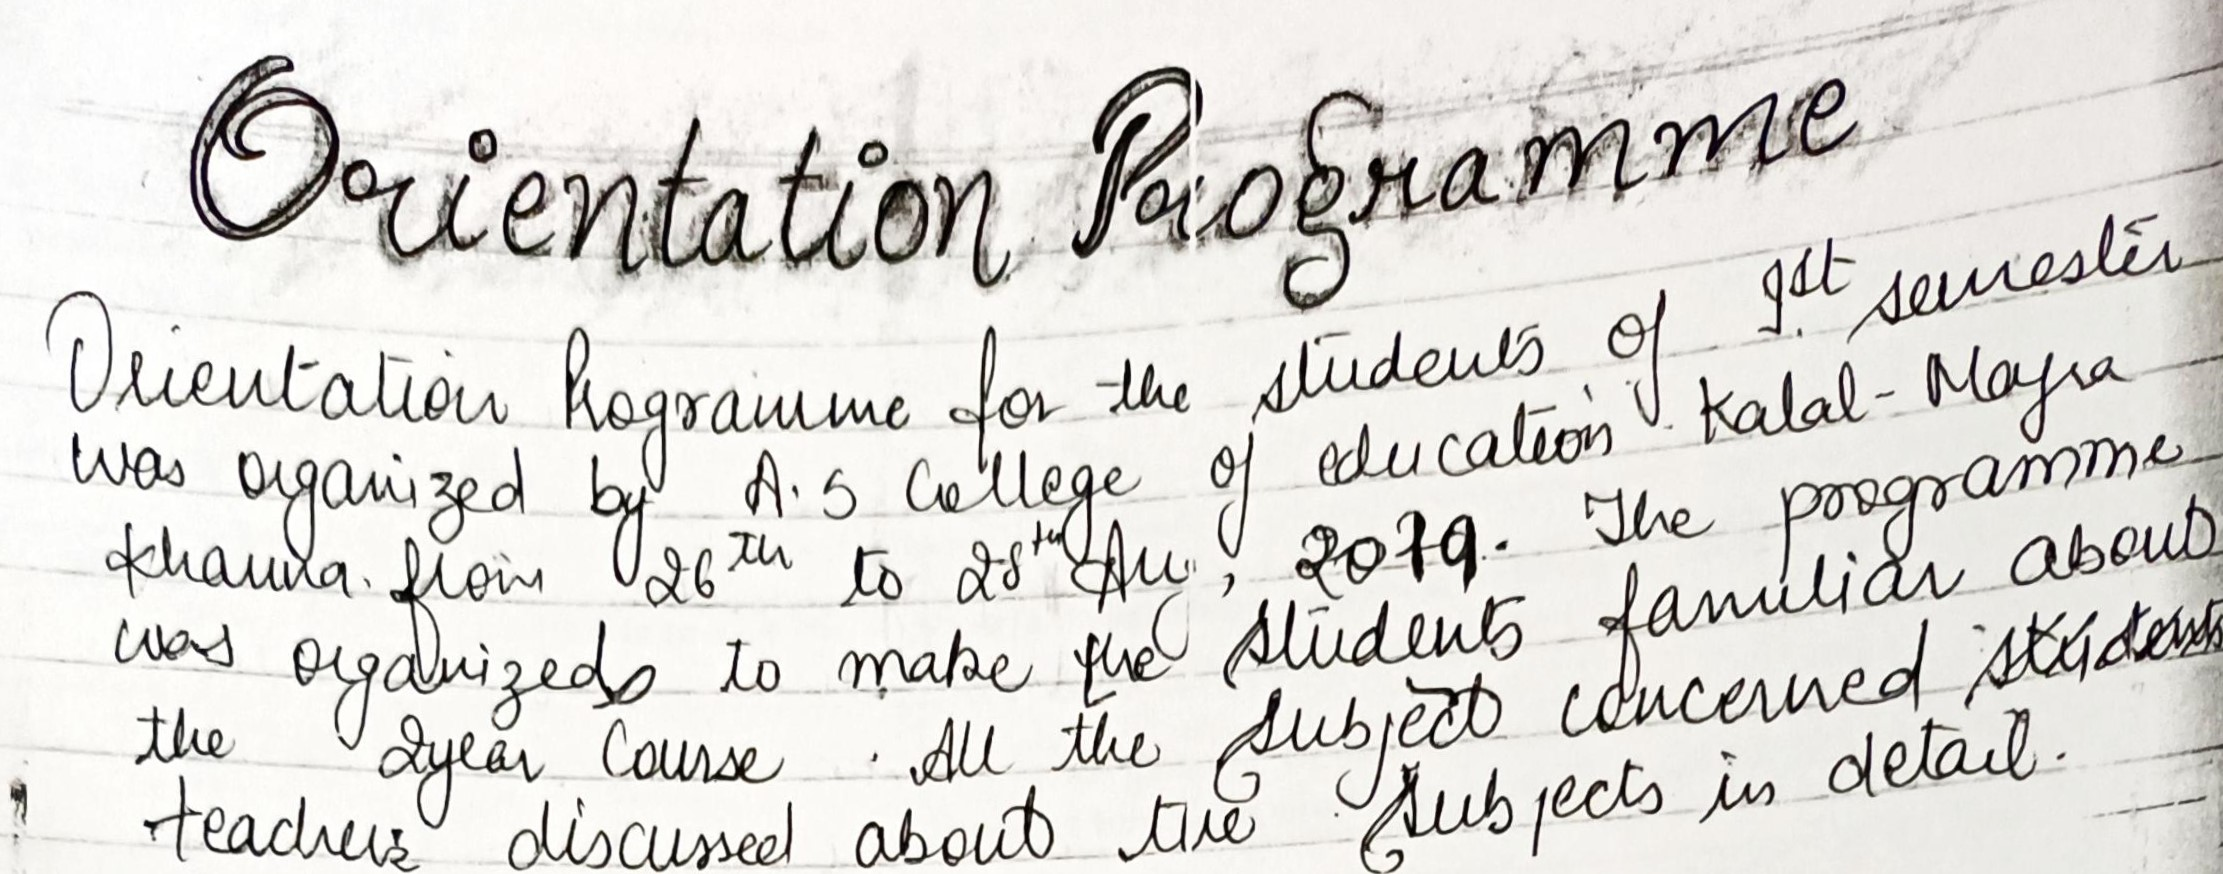 Orientation Programme
Orientation Programme for the students of Ist semester
was organized by A.S College of education Kalal-Majra
Khanna. from 26th to 28th Aug, 2019. The programme
was organized to make the students familiar about
the 2year Course. All the subject concerned
teachers discussed about the subjects in detail.